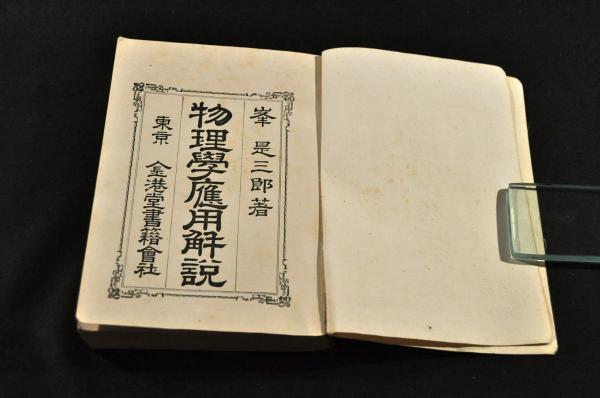 峯是三郎著
物理學應用解説
東京 金港堂書籍會社